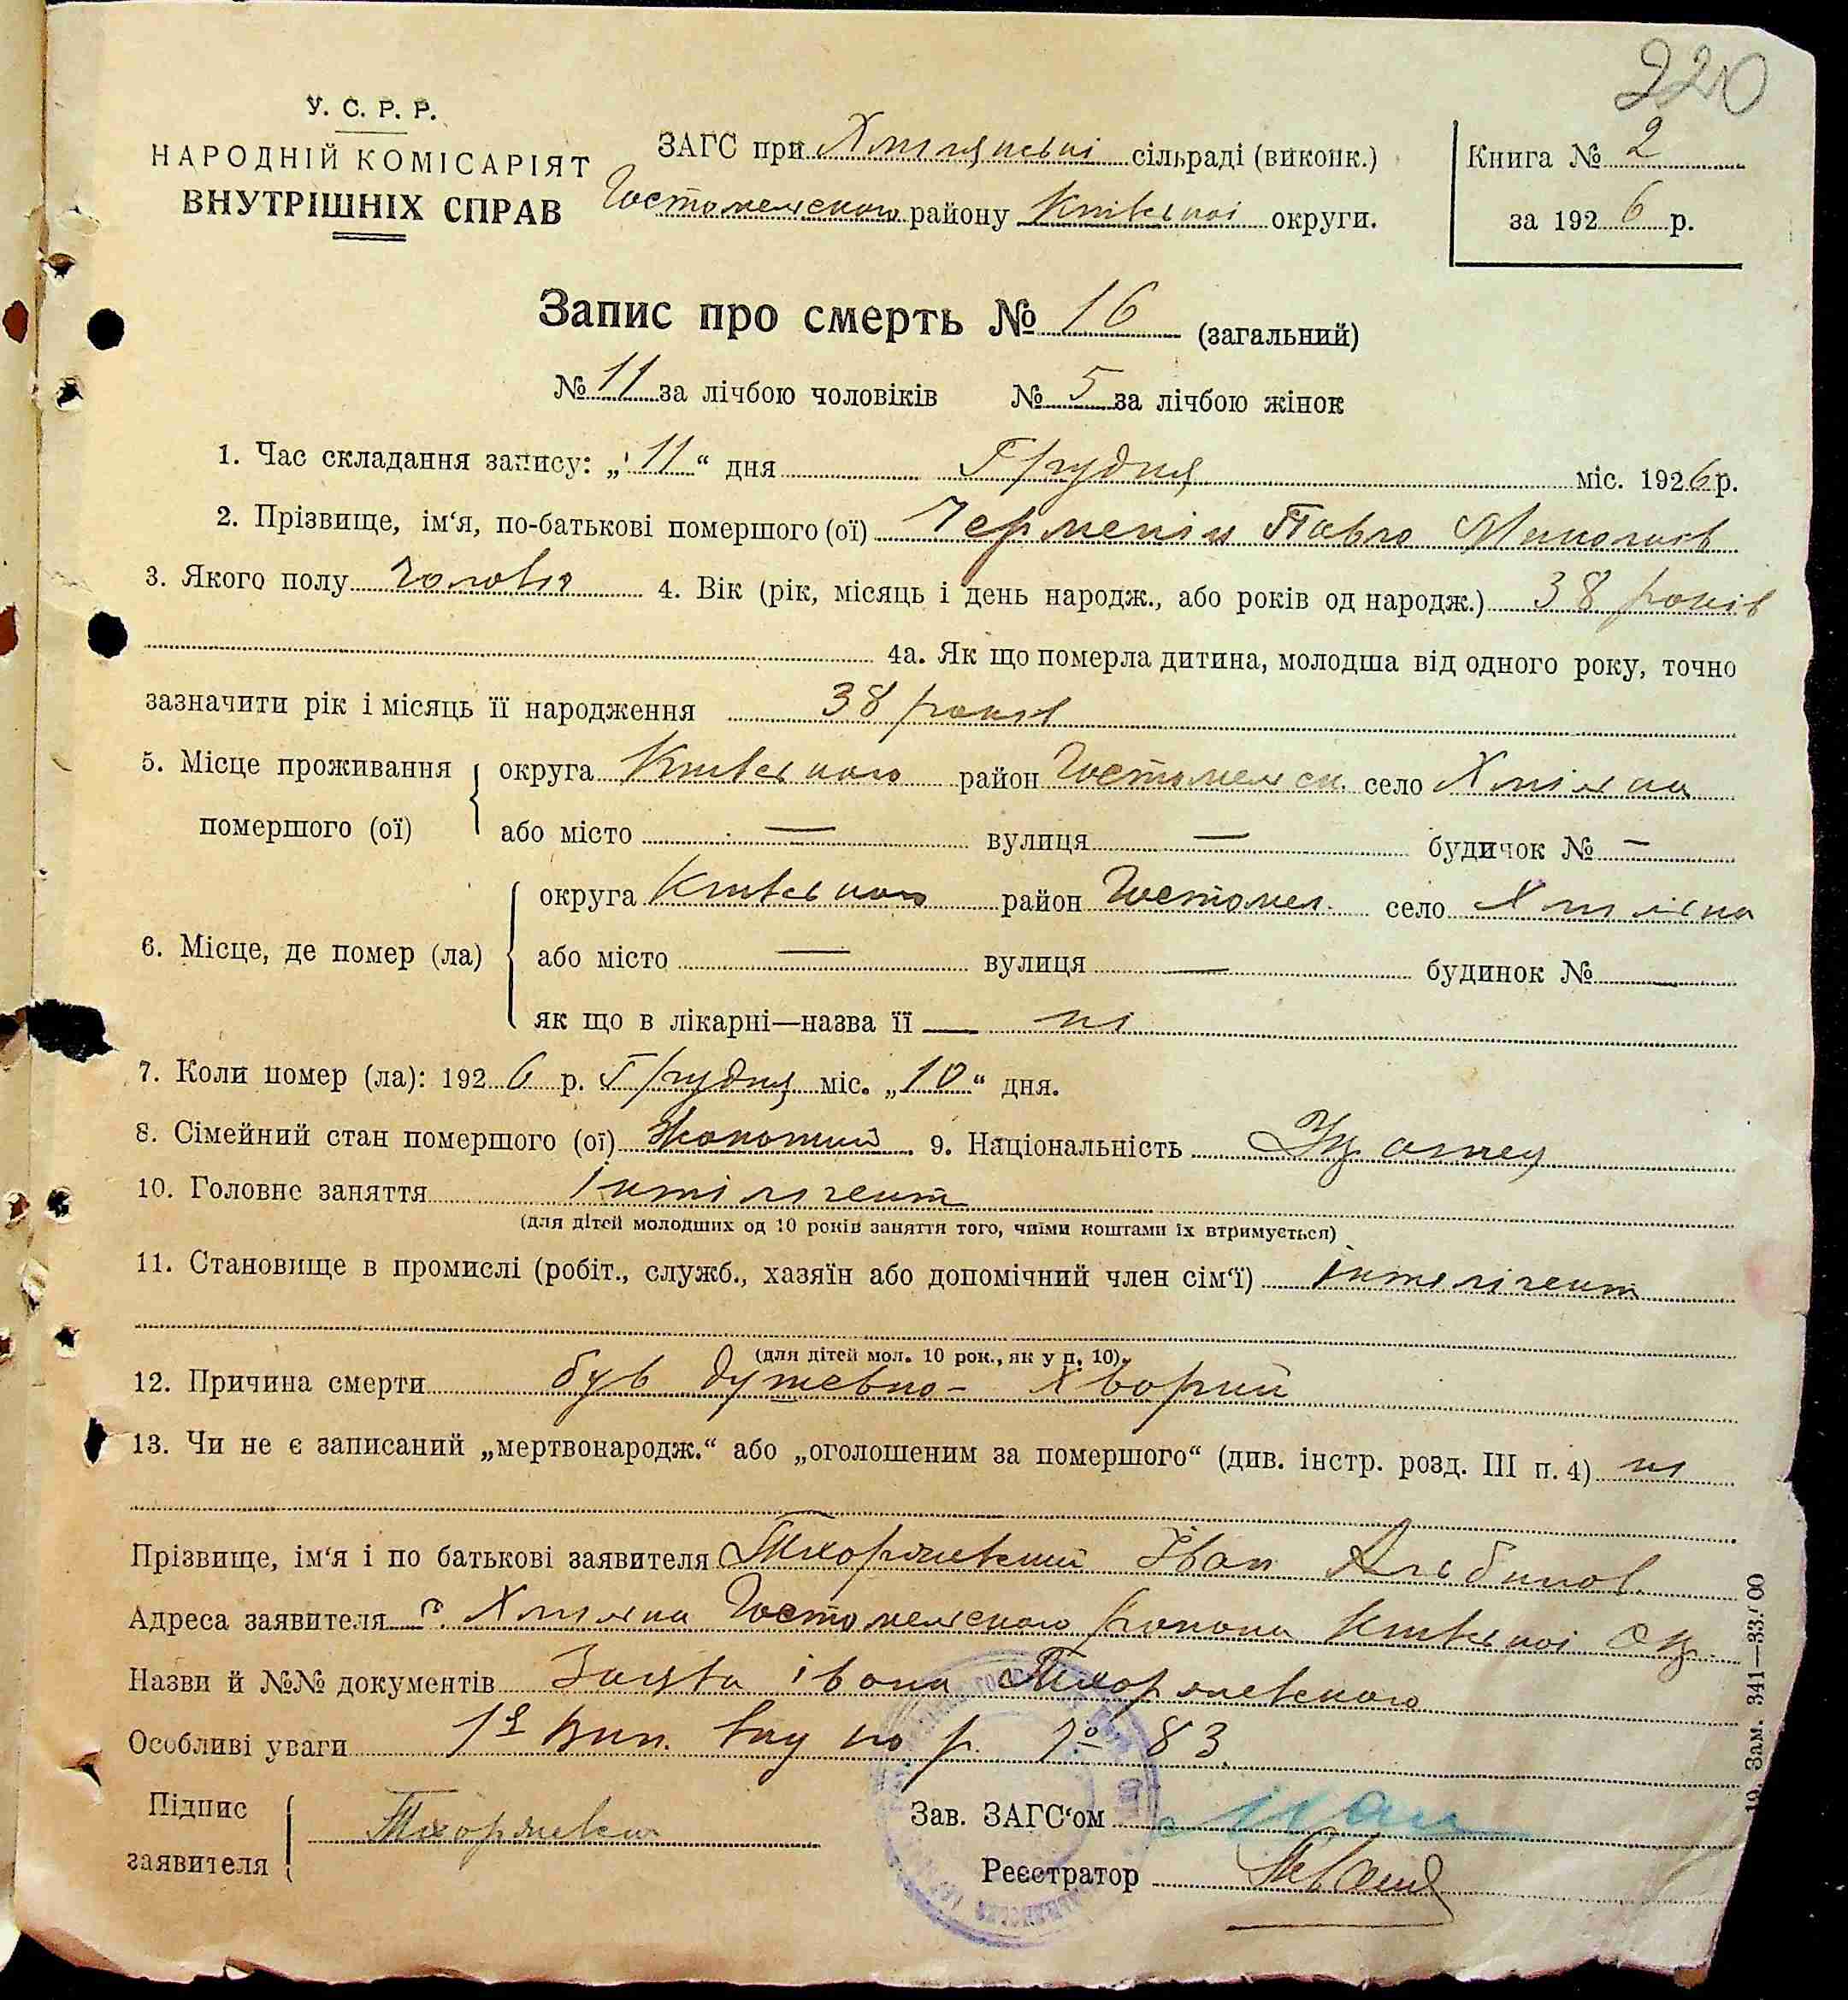 220
У. С. Р. Р.
НАРОДНІЙ КОМІСАРІЯТ
ВНУТРІШНІХ СПРАВ
ЗАГС при сільраді (виконк.)
Гостомельского району Київської округи.
Книга № 2
за 1926 р.
Запис про смерть № 16 (загальний)
№ 11 за лічбою чоловіків № 5 за лічбою жінок
1. Час складання запису: „11“ дня Грудня міс. 1926 р.
2. Прізвище, ім‘я, по-батькові помершого (ої) Павло
3. Якого полу 4. Вік (рік, місяць і день народж., або років од народж.) 38 років
4а. Як що померла дитина, молодша від одного року, точно
зазначити рік і місяць її народження 38 років
5. Місце проживання помершого (ої) округа район Гостомельск. село Хмільна
або місто — вулиця — будинок № —
6. Місце, де помер (ла) округа район Гостомел. село Хмільна
або місто — вулиця — будинок № —
як що в лікарні—назва її — ні
7. Коли помер (ла): 1926 р. Грудня міс. „10“ дня.
8. Сімейний стан помершого (ої) Жонатий 9. Національність
10. Головне заняття Інтілігент
(для дітей молодших од 10 років заняття того, чиїми коштами їх втримується)
11. Становище в промислі (робіт., служб., хазяїн або допомічний член сім‘ї) Інтелігент
(для дітей мол. 10 рок., як у п. 10).
12. Причина смерти був душевно-хворий
13. Чи не є записаний „мертвонародж.“ або „оголошеним за помершого“ (див. інстр. розд. III п. 4) ні
Прізвище, ім‘я і по батькові заявителя Тхоржевський Іван Альбинов.
Адреса заявителя с. Хмільна Гостомельского району Київської Окр.
Назви й №№ документів Заява Івана Тхоржевського
Особливі уваги 83
Підпис заявителя
Зав. ЗАГС‘ом
Реєстратор
10. Зам. 341—33.000